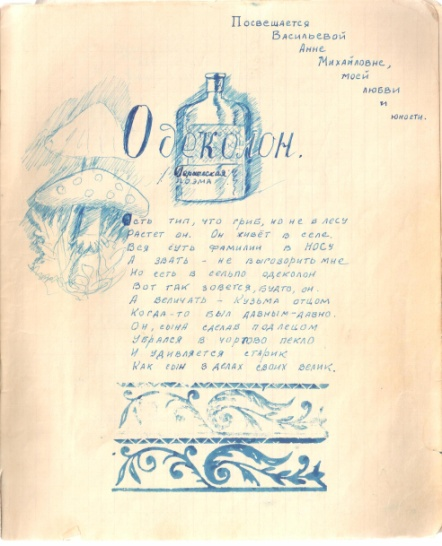 Посвещается
Васильевой
Анне
Михайловне,
моей
любви
и
юности.
Одеколон.
поэма
Есть тип, что гриб, но не в лесу
Растет он. Он живёт в селе.
Вся суть фамилии в носу
А звать - не выговорить мне
Но есть в сельпо одеколон
Вот так зовется, будто, он.
А величать - Кузьма отцом
Когда-то был давным-давно.
Он, сына сделав подлецом
Убрался в чортово пекло
И удивляется старик
Как сын в делах своих велик.